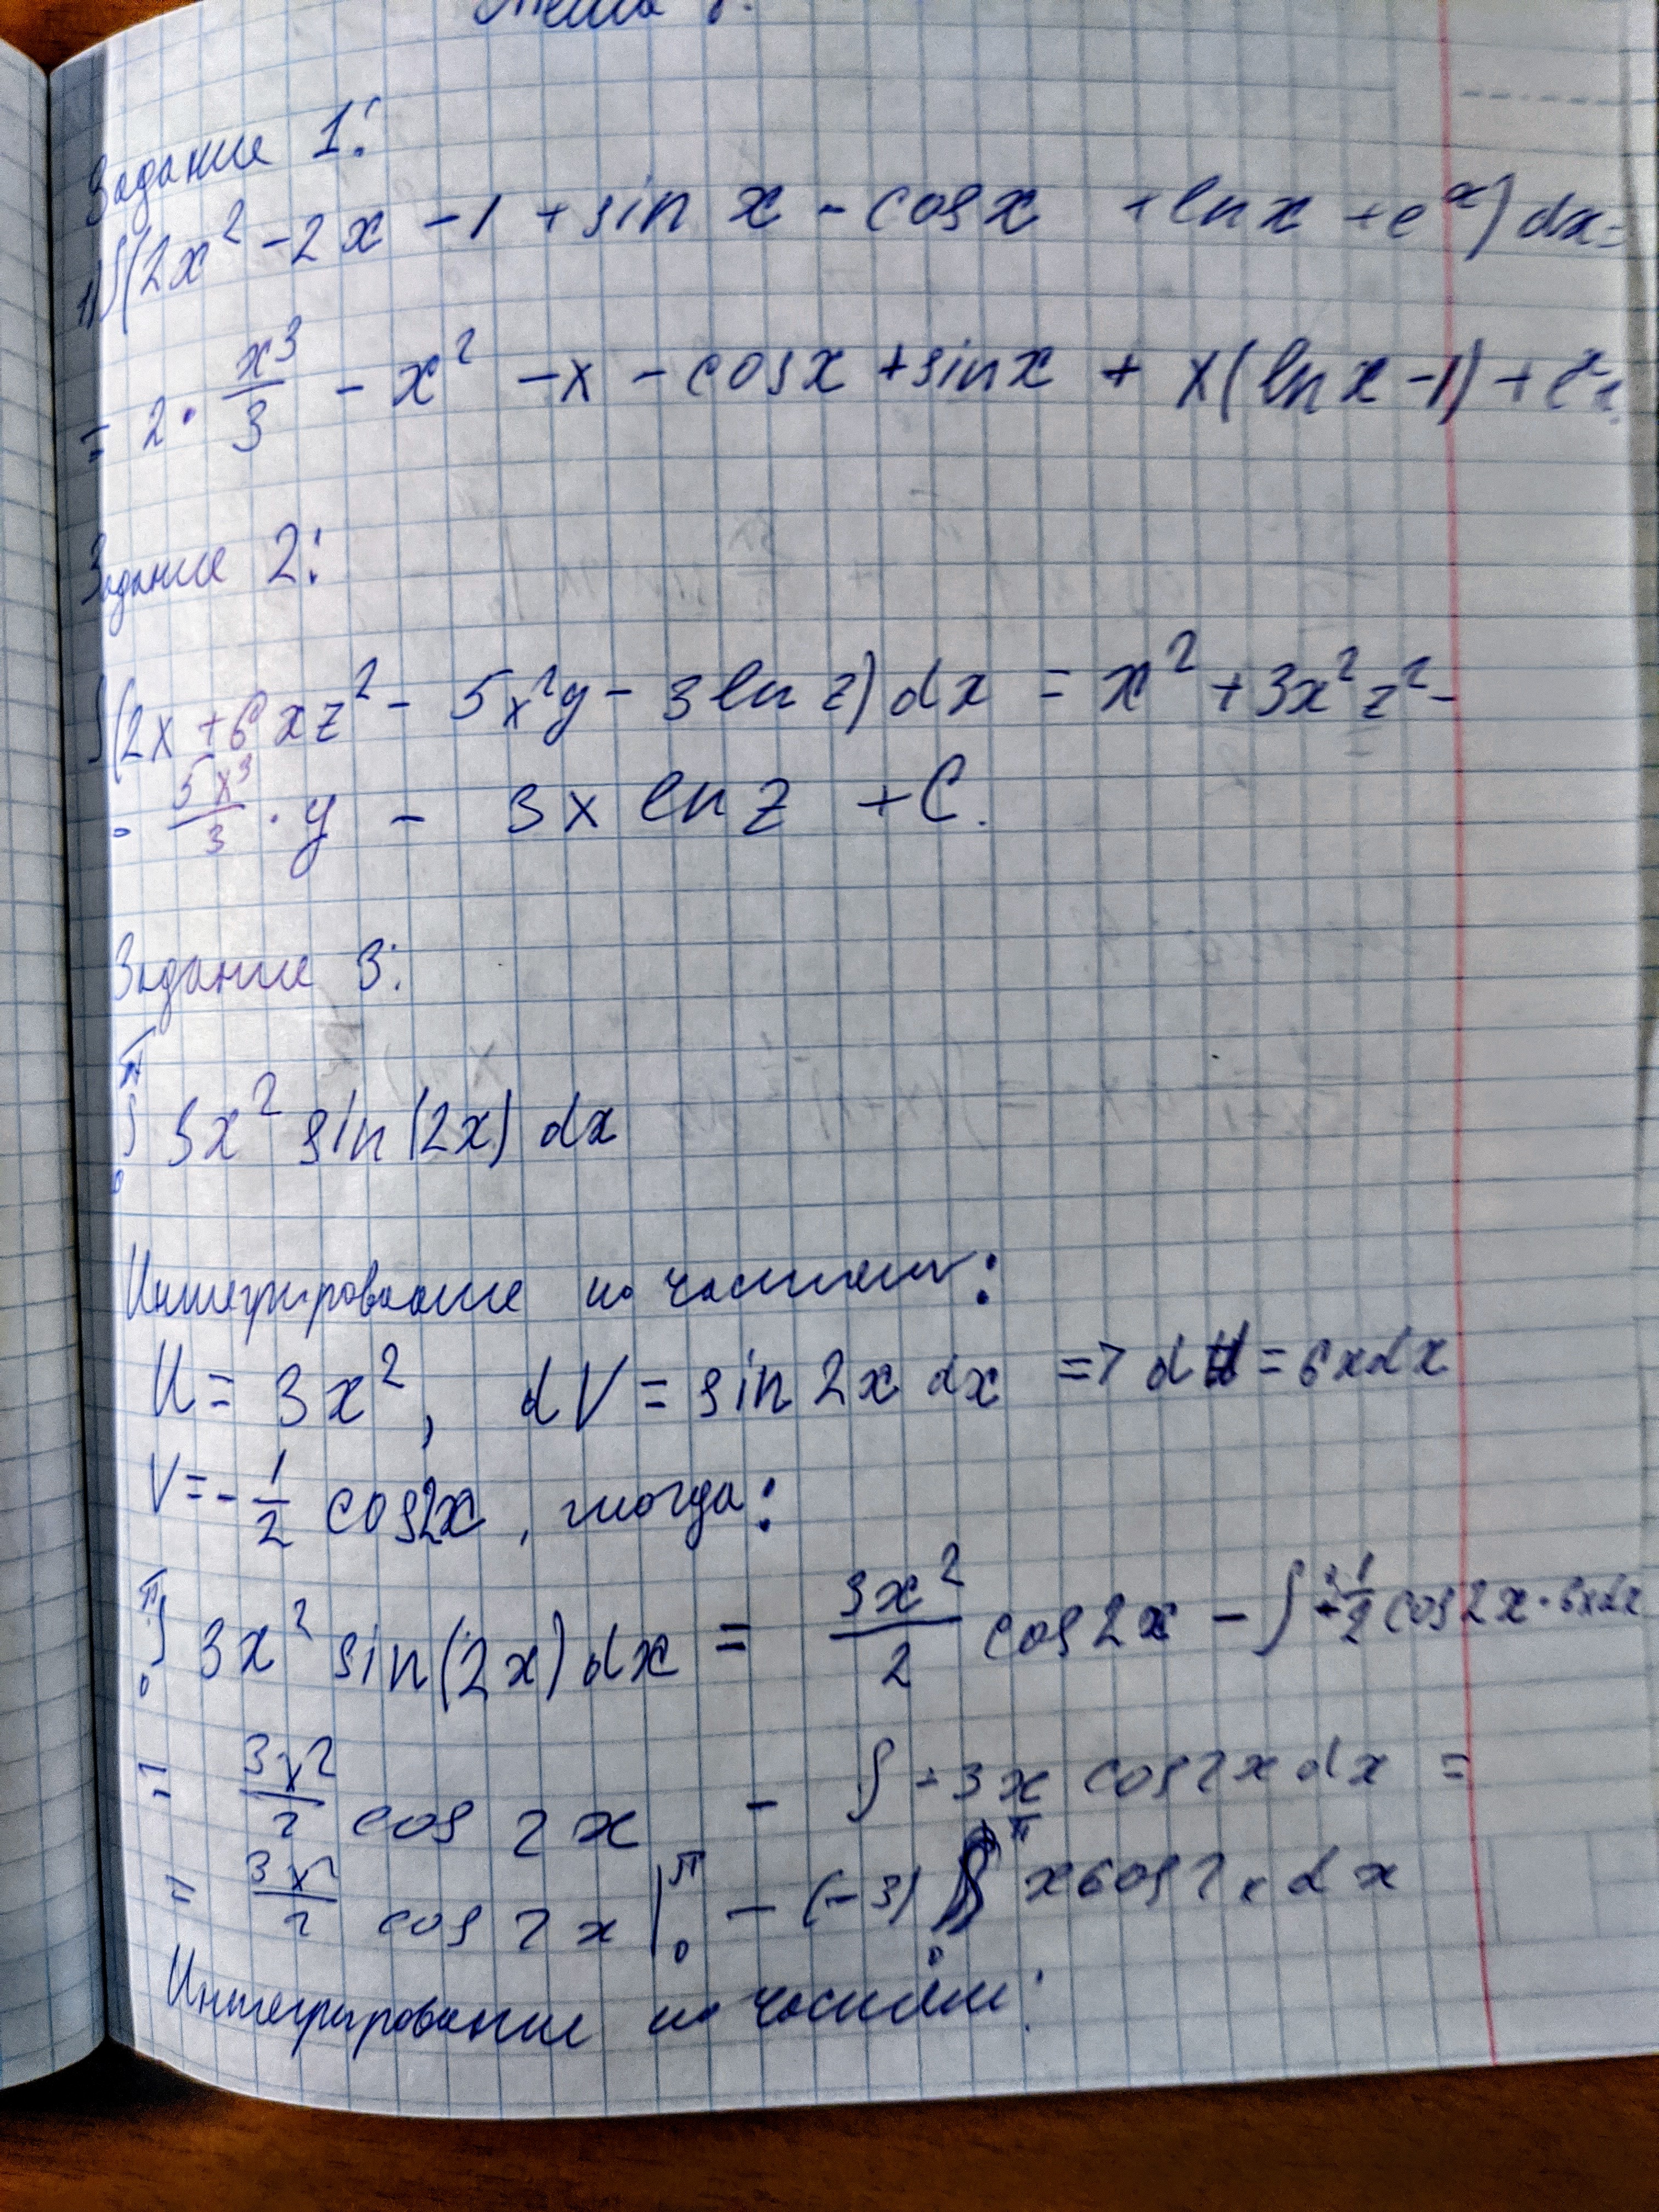 Тема
Задание 1:
1) ∫(2x² - 2x - 1 + sin x - cos x + ln x + e^x) dx =
= 2 · x³/3 - x² - x - cos x + sin x + x(ln x - 1) + e^x
Задание 2:
∫(2x + 6xz² - 5x²y - 3 ln z) dx = x² + 3x²z² -
- 5x³/3 · y - 3x ln z + C.
Задание 3:
∫₀^π 3x² sin(2x) dx
Интегрирование по частям:
U = 3x², dV = sin 2x dx => dU = 6xdx
V = -1/2 cos2x, тогда:
∫₀^π 3x² sin(2x) dx = 3x²/2 cos2x - ∫ -1/2 cos2x · 6xdx
= 3x²/2 cos 2x - ∫ -3x cos2x dx =
= 3x²/2 cos 2x |₀^π - (-3) ∫₀^π x cos2x dx
Интегрирование по частям: